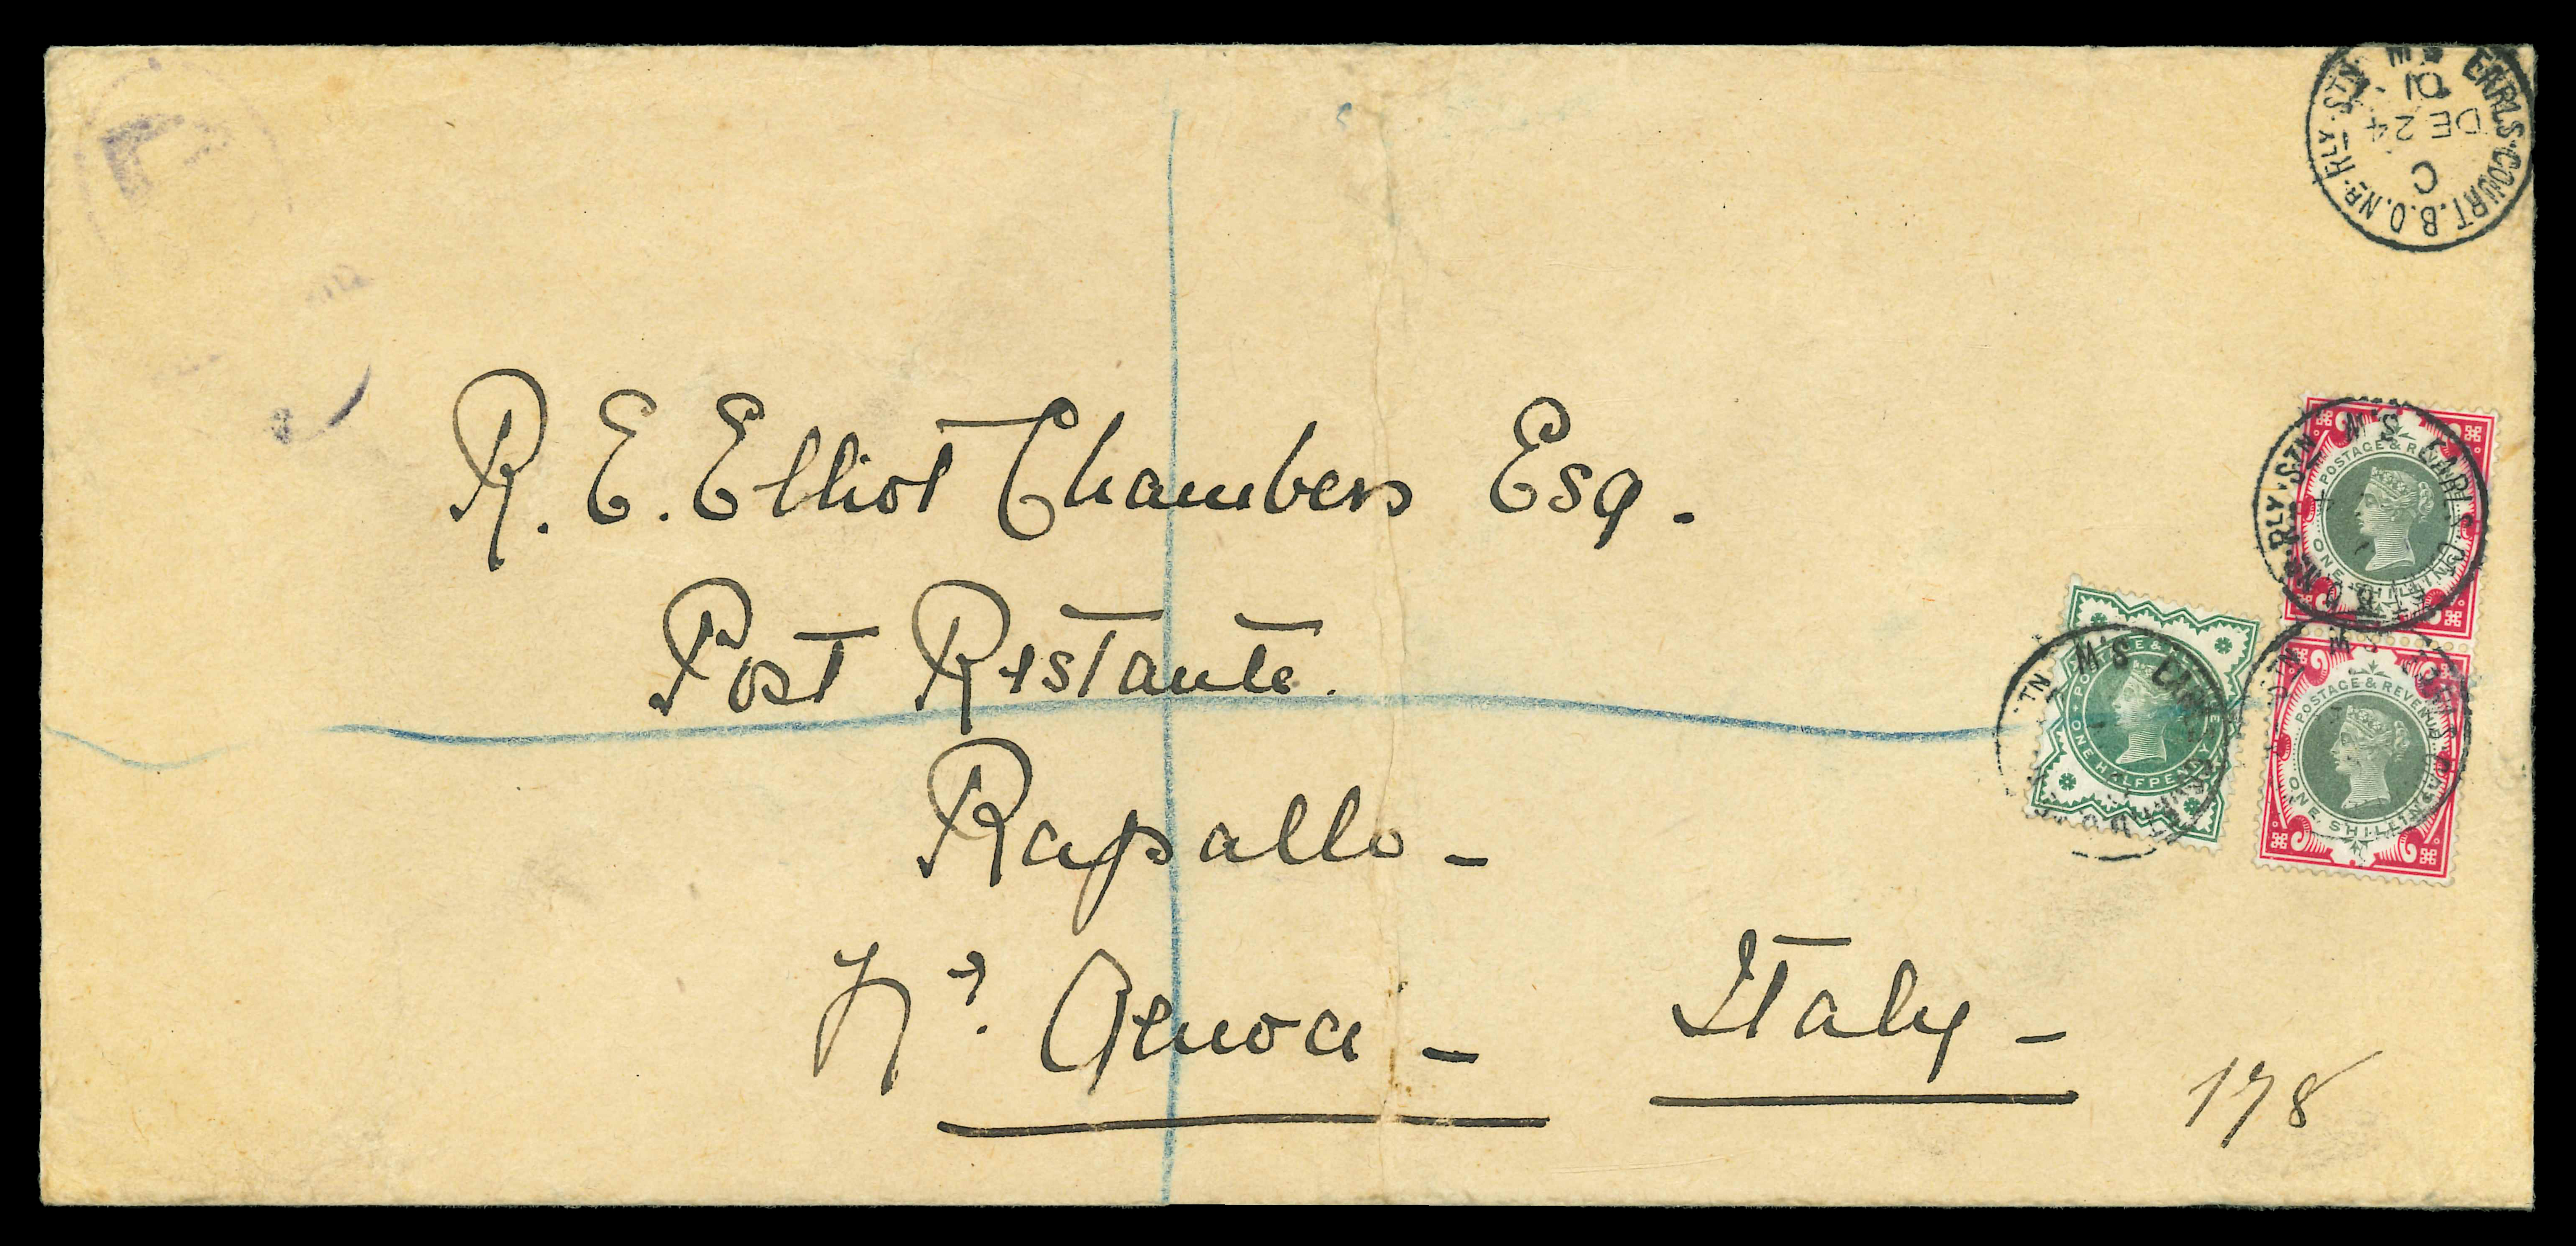 R. E. Elliot Chambers Esq.
Post Restante.
Rapallo -
Nr. Genoa - Italy -
178
EARLS·COURT.B.O.NR·RLY·STN. S W
C
DE 24
01
POSTAGE & REVENUE
ONE SHILLING
POSTAGE & REVENUE
ONE SHILLING
POSTAGE & REVENUE
ONE HALFPENNY